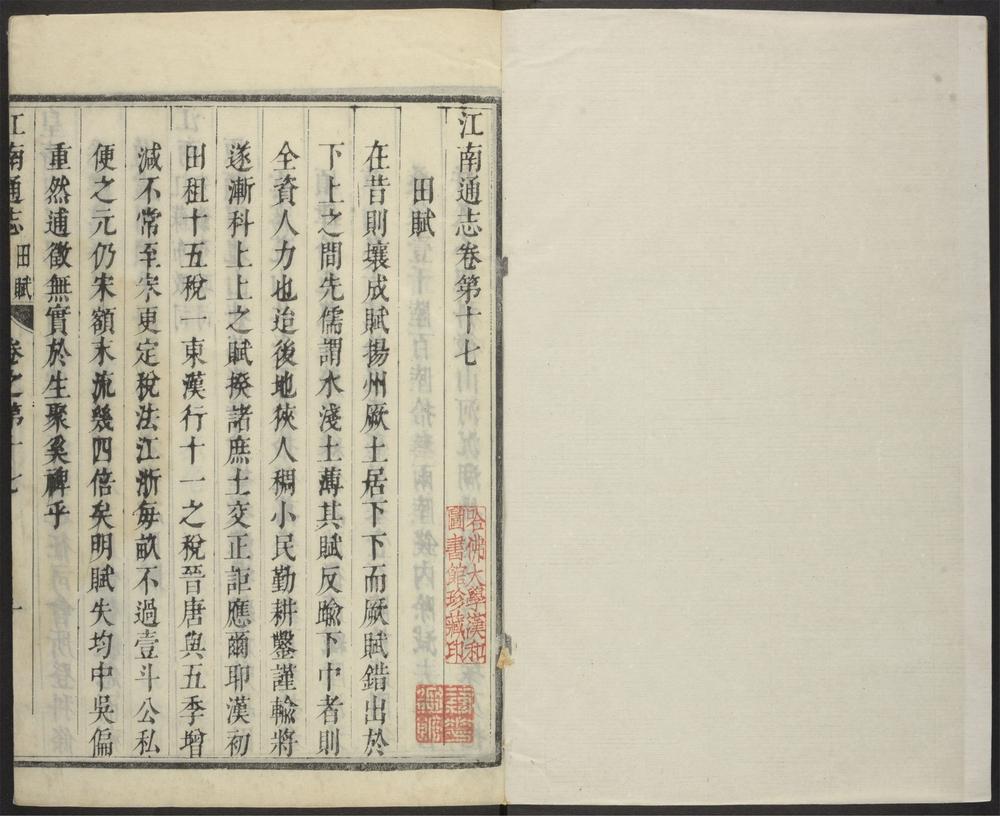 江南通志卷第十七
田賦
在昔則壤成賦揚州厥土居下下而厥賦錯出於
下上之間先儒謂水淺土薄其賦反踰下中者則
全資人力也迨後地狹人稠小民勤耕鑿謹輸將
遂漸科上上之賦揆諸庶土交正詎應爾耶漢初
田租十五稅一東漢行十一之稅晉唐與五季增
減不常至宋更定稅法江浙每畝不過壹斗公私
便之元仍宋額末流幾四倍矣明賦失均中吳偏
重然逋徵無實於生聚奚裨乎
江南通志 田賦 卷之第十七 一
哈佛大學漢和
圖書館珍藏印